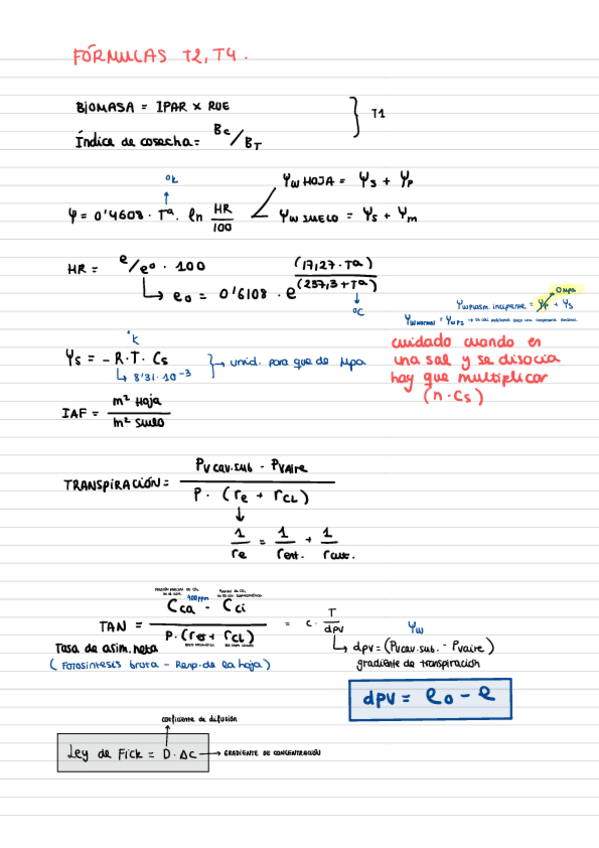 FÓRMULAS T2, T4.
BIOMASA = IPAR x RUE
Índice de cosecha = Bc/BT
} T1
ºk
Ψ = 0'4608 · Tª. ln HR/100
Ψw HOJA = Ψs + Ψp
Ψw SUELO = Ψs + Ψm
HR = e/eº · 100
eo = 0'6108 · e (17,27 · Tª)/(237,3 + Tª)
ºC
0 Mpa
Ψw plasm. incipiente = Ψp + Ψs
ºk
Ψs = - R · T · Cs
8'31 · 10⁻³
unid. para que de Mpa
cuidado cuando es
una sal y se disocia
hay que multiplicar
(n · Cs)
IAF = m² Hoja / m² Suelo
TRANSPIRACIÓN = Pv cav. sub - Pv Aire / P · (re + rCL)
1/re = 1/rest. + 1/rcut.
400 ppm
TAN = Cca - Cci / P · (re + rCL) = c · T/dpv
Tasa de asim. neta
(Fotosíntesis bruta - Resp. de la hoja)
Ψw
dpv = (Pv cav. sub. - Pv aire)
gradiente de transpiración
dpv = eo - e
coeficiente de difusión
Ley de Fick = D · ΔC → GRADIENTE DE CONCENTRACIÓN